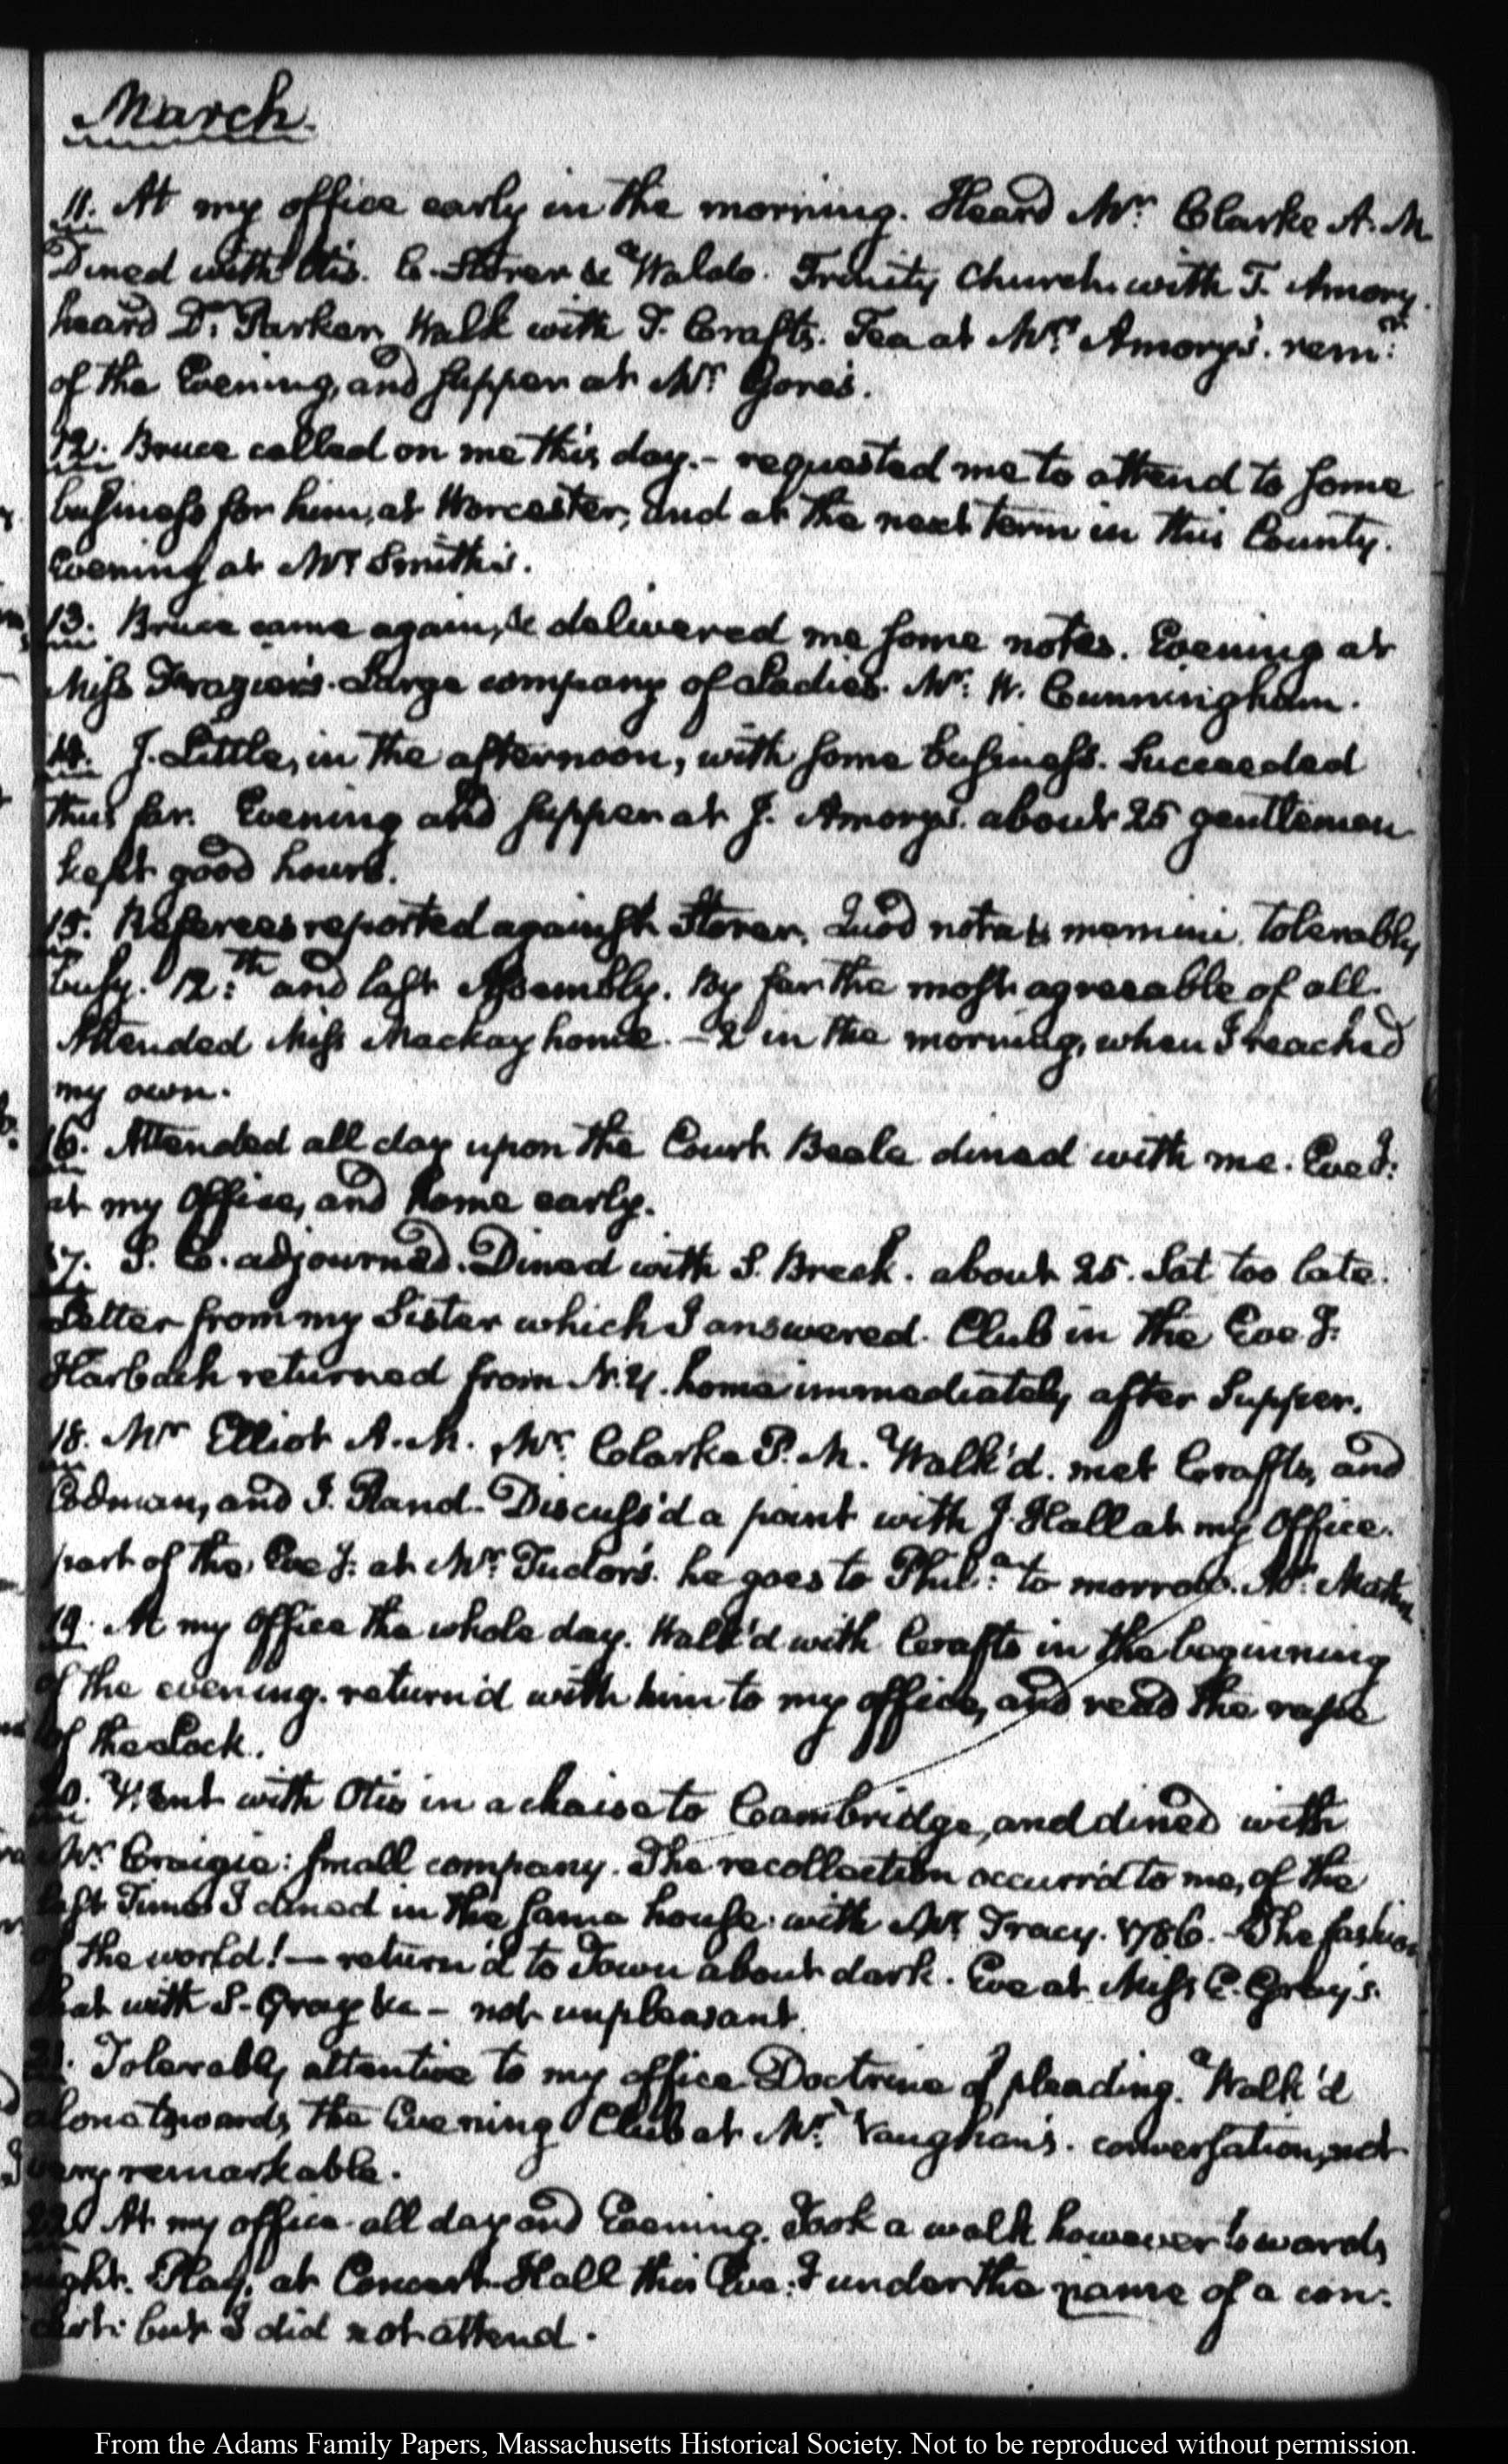 March.
11. At my office early in the morning. Heard Mr. Clarke A.M
Dined with Otis. C. Storer & Waldo. Trinity Church with T. Amory.
heard Dr. Parker, Walk with T. Crafts. Tea at Mrs. Amory's. remr:
of the Evening, and supper at Mr. Gore's.
12. Bruce called on me this day. – requested me to attend to some
business for him, at Worcester, and at the next term in this County.
Evening at Mr. Smith's.
13. Bruce came again, & delivered me some notes. Evening at
Miss Frazier's. Large company of Ladies. Mr. W. Cunningham.
14. J. Little, in the afternoon, with some business. Succeeded
thus far. Evening and supper at J. Amory's. about 25 gentlemen
kept good hours.
15. Referees reported against Storer. Quod nota & memini. tolerably
busy. 12:th and last Assembly. By far the most agreeable of all.
Attended Miss Mackay home. – 2 in the morning, when I reached
my own.
16. Attended all day upon the Court. Beale dined with me. Eveg:
at my Office, and home early.
17. S. C. adjourned. Dined with S. Breck. about 25. Sat too late.
Letter from my Sister which I answered. Club in the Eveg:
Harbach returned from N.Y. home immediately after Supper.
18. Mr Elliot A.M. Mr. Clarke P.M. Walk'd. met Crafts, and
Codman, and I. Rand. Discuss'd a point with J. Hall at my Office.
part of the Eveg: at Mr. Tudor's. he goes to Phila: to morrow. Mr.
19. At my Office the whole day. Walk'd with Crafts in the beginning
of the evening. return'd with him to my office, and read the rape
of the Lock.
20. Went with Otis in a chaise to Cambridge, and dined with
Mr. Craigie: small company. The recollection occurr'd to me, of the
last Time I dined in the same house with Mr. Tracy. 1786. – The fashion
of the world! — return'd to Town about dark. Eve at Miss C. Gray's.
Chat with S. Gray &c – not unpleasant.
21. Tolerably attentive to my office. Doctrine of pleading. Walk'd
alone towards the Evening. Club at Mr. Vaughan's. conversation, not
very remarkable.
22. At my office all day and Evening. Took a walk however towards
night. Play, at Concert-Hall this Eve:g under the name of a con:
cert: but I did not attend.
From the Adams Family Papers, Massachusetts Historical Society. Not to be reproduced without permission.